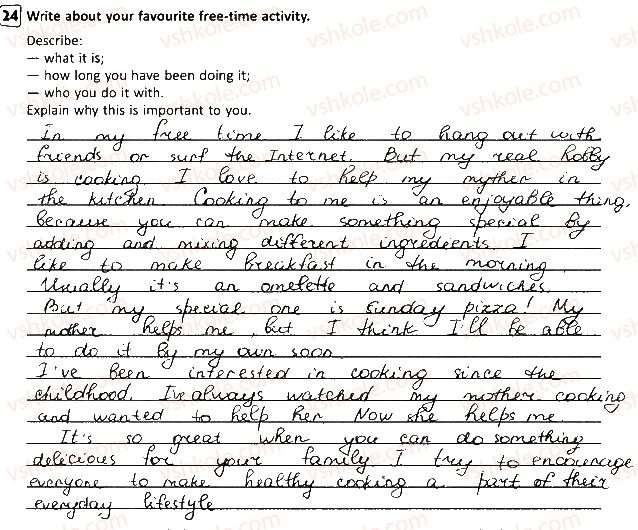 24 Write about your favourite free-time activity.
Describe:
— what it is;
— how long you have been doing it;
— who you do it with.
Explain why this is important to you.
In my free time I like to hang out with
friends or surf the Internet. But my real hobby
is cooking. I love to help my mother in
the kitchen. Cooking to me is an enjoyable thing,
because you can make something special by
adding and mixing different ingredients. I
like to make breakfast in the morning.
Usually it's an omelette and sandwiches.
But my special one is Sunday pizza! My
mother helps me, but I think I'll be able
to do it by my own soon.
I've been interested in cooking since the
childhood. I've always watched my mother cooking
and wanted to help her. Now she helps me.
It's so great when you can do something
delicious for your family. I try to encourage
everyone to make healthy cooking a part of their
everyday lifestyle.